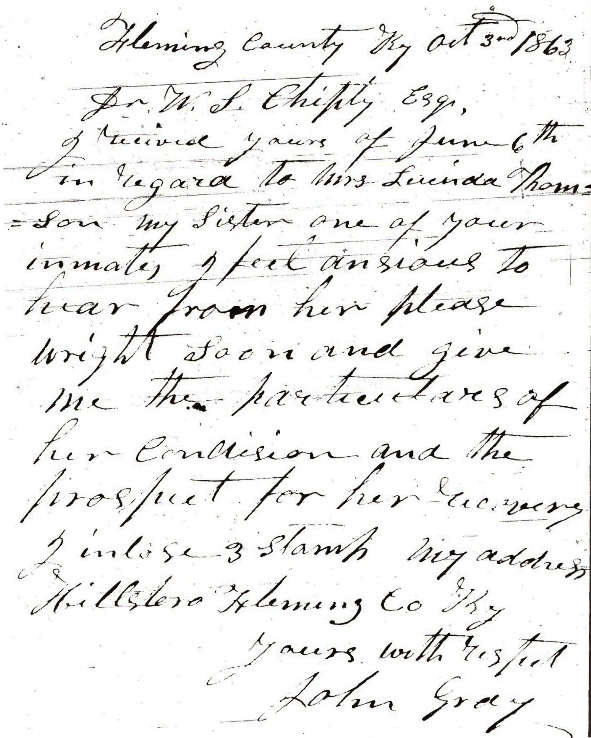 Fleming County Ky Oct 3rd 1863
Dr. W. S. Chiply Esqr,
I reeived yours of June 6th
in regard to Mrs Lucinda Thom=
=son my Sister one of your
inmates, I feel ansious to
hear from her please
wright soon and give
me the particulars of
her Condision and the
prospect for her recovery
I inlose 3 Stamp my address
Hillsboro Fleming Co Ky
Yours with respect
John Gray